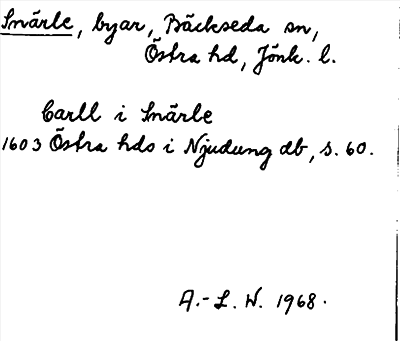 Snärle, byar, Bäckseda sn,
Östra hd, Jönk. l.
Carll i Snärle
1603 Östra hds i Njudung db, s. 60.
A.-L. W. 1968.